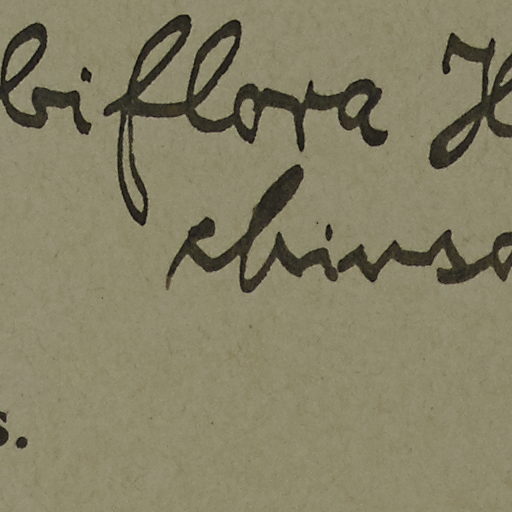 biflora H
chinso
s.